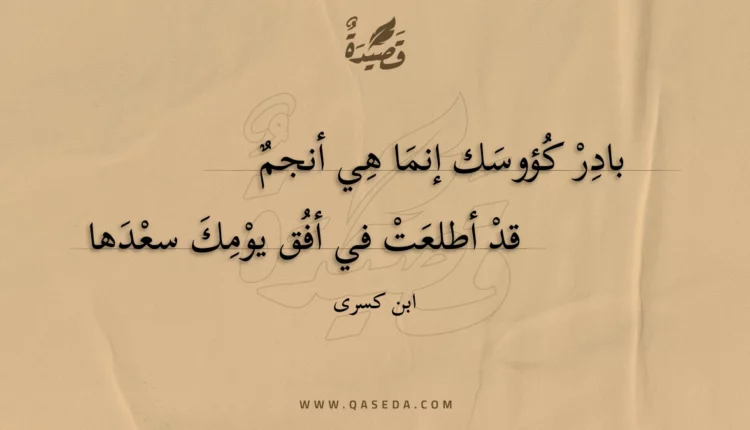 قَصِيْدَةٌ
بادِرْ كُؤوسَك إنمَا هِي أنجمٌ
قدْ أطلعَتْ في أفُق يوْمِكَ سعْدَها
ابن كسرى
WWW.QASEDA.COM